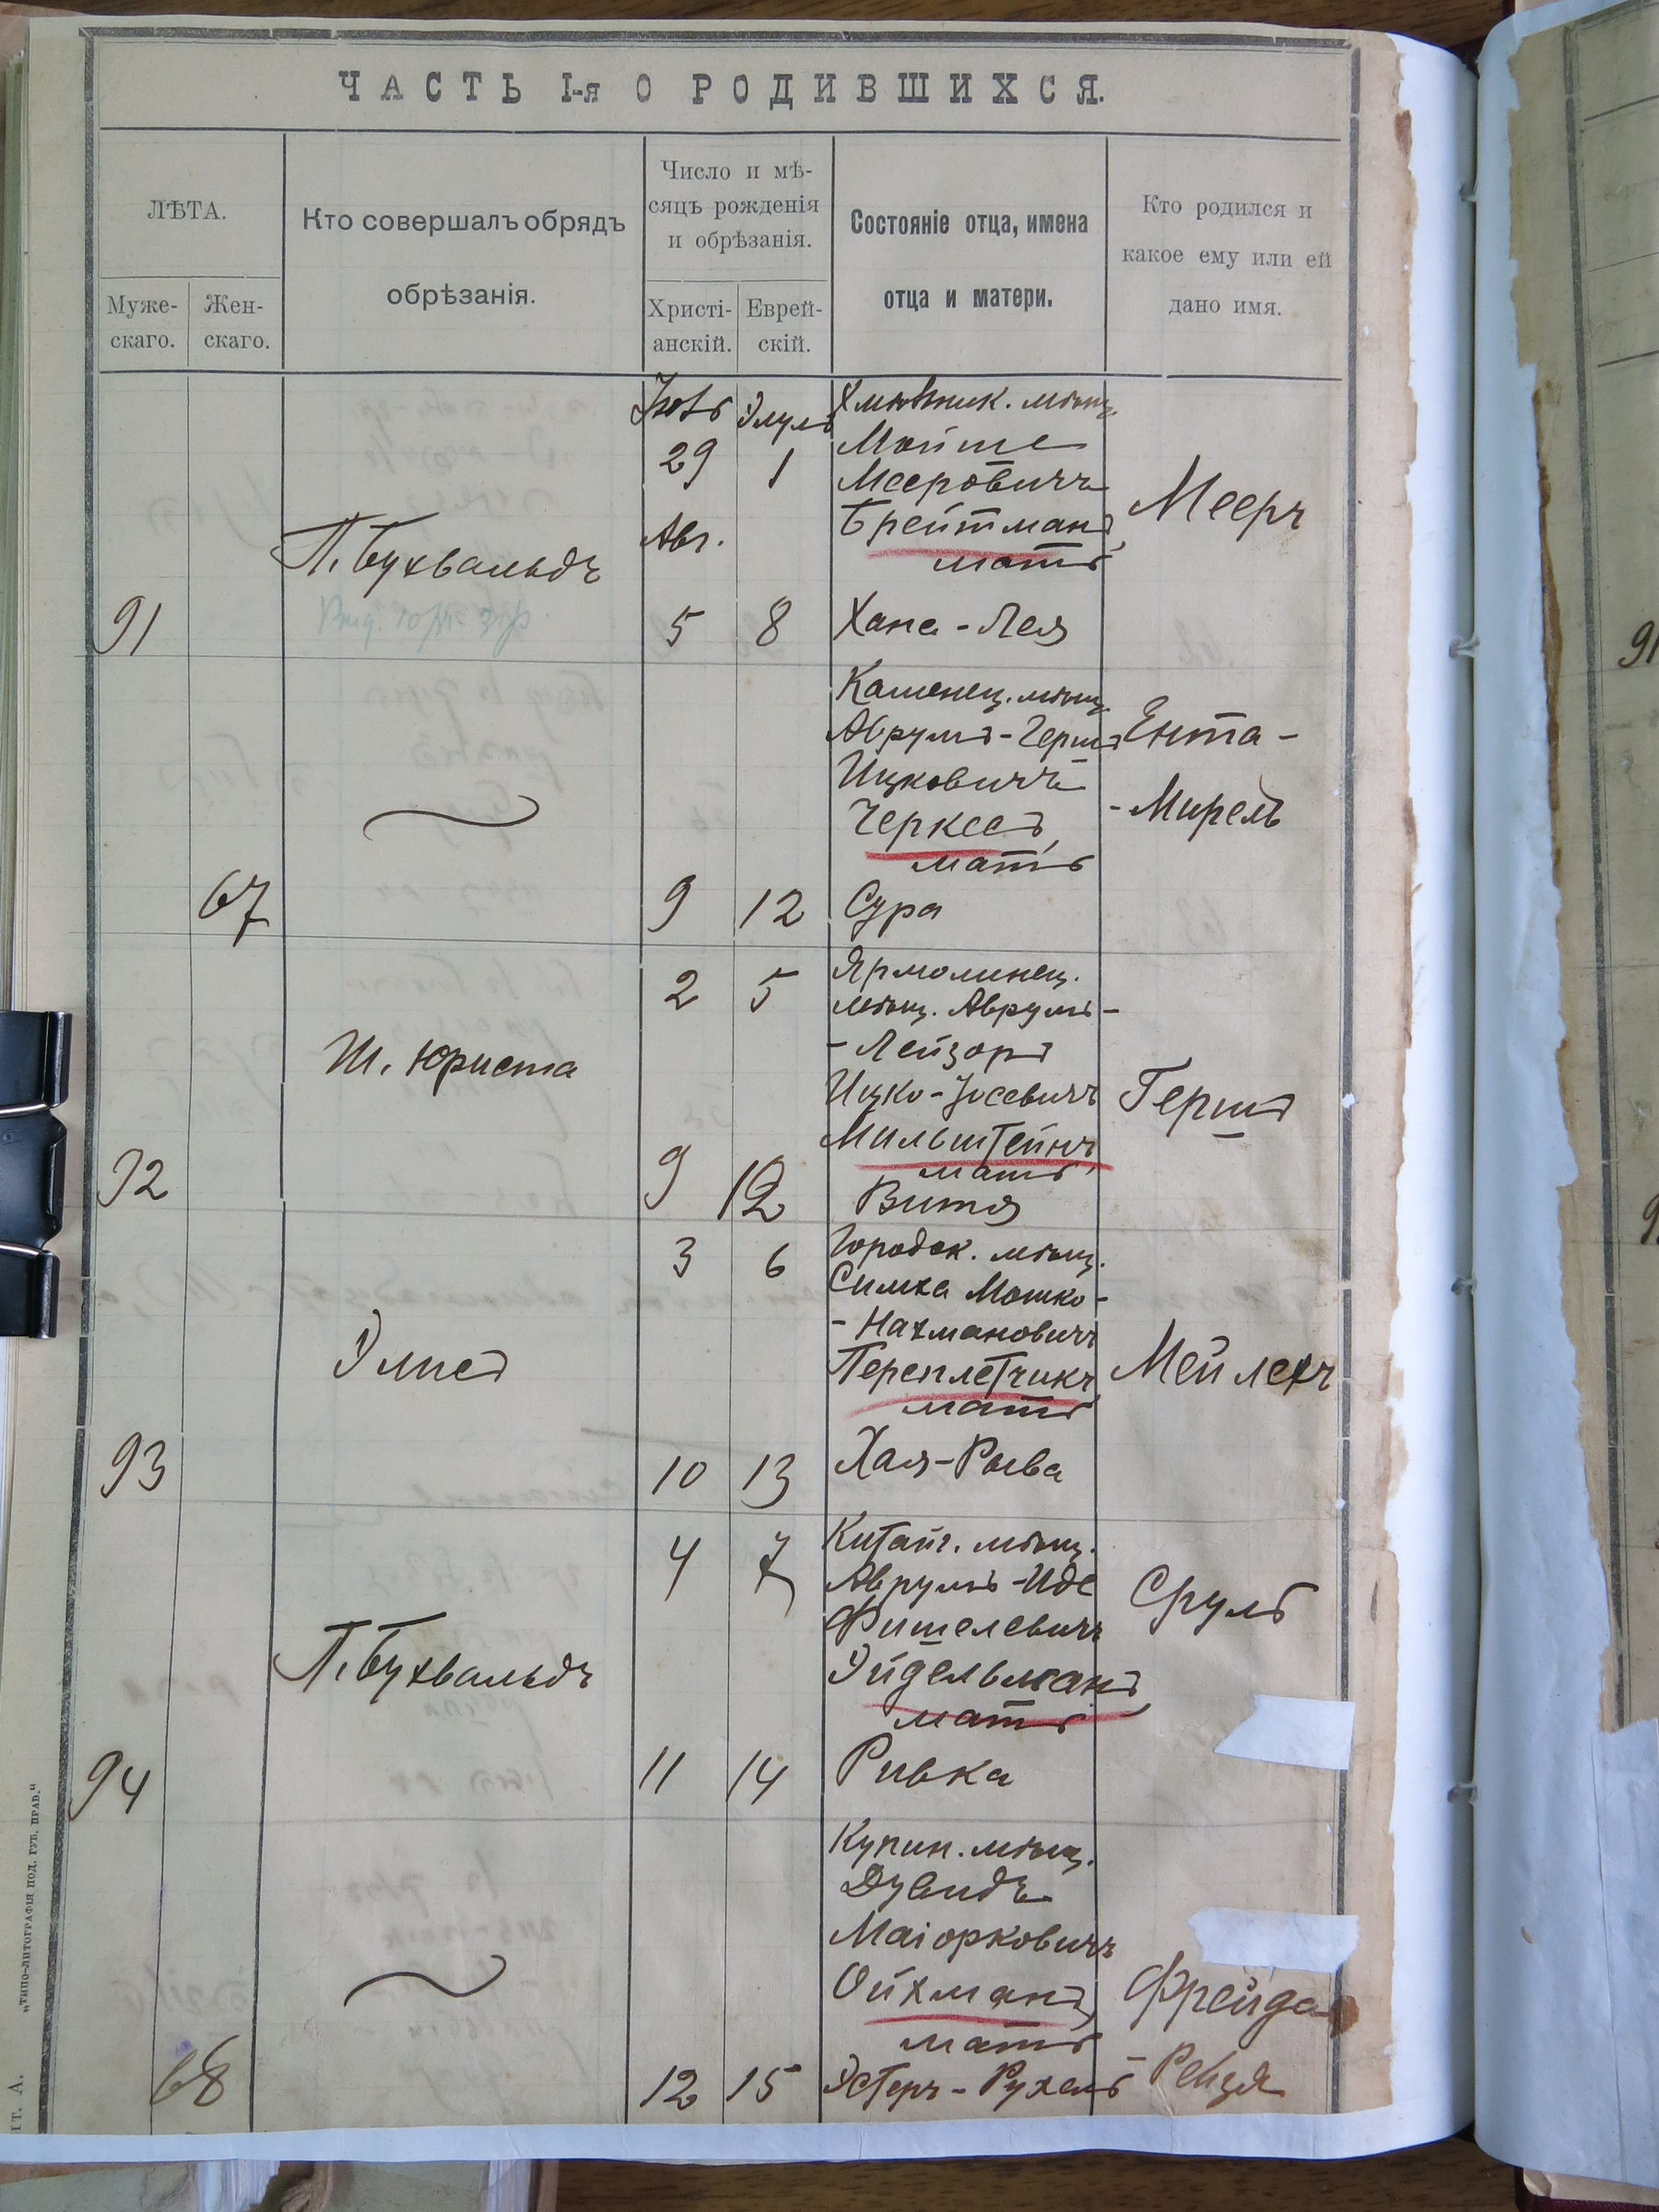 ЧАСТЬ I-я О РОДИВШИХСЯ.
ЛѢТА.
Муже-
скаго.
Жен-
скаго.
Кто совершалъ обрядъ
обрѣзанія.
Число и мѣ-
сяцъ рожденія
и обрѣзанія.
Христі-
анскій.
Еврей-
скій.
Состояніе отца, имена
отца и матери.
Кто родился и
какое ему или ей
дано имя.
91
П. Бухвальдъ
Элулъ
29 1
Авг.
5 8
мѣщ.
Мойше
Мееровичъ
Брейтманъ,
мать
Хана-Лея
Мееръ
67
9 12
Каменец. мѣщ.
Аврумъ-Гершъ
Ицковичъ
Черкесъ,
мать
Сура
Ента-
-Мирель
92
Ш. Юриста
2 5
9 12
Ярмолинец.
мѣщ. Аврумъ-
-Лейзоръ
Ицко-Іосевичъ
Мильштейнъ,
мать
Витя
Гершъ
93
3 6
10 13
Городок. мѣщ.
Симха Мошко-
-Нахмановичъ
Переплетчикъ,
мать
Хая-Рыва
Мейлехъ
94
П. Бухвальдъ
4 7
11 14
Китайг. мѣщ.
Аврумъ-Иде
Фишелевичъ
Эйдельманъ,
мать
Ривка
Сруль
68
12 15
Купин. мѣщ.
Дувидъ
Маіорковичъ
Ойхманъ,
мать
Эстеръ-Рухель
Фрейда
-Рейзя
„ТИПО-ЛИТОГРАФІЯ ПОД. ГУБ. ПРАВ.“
91